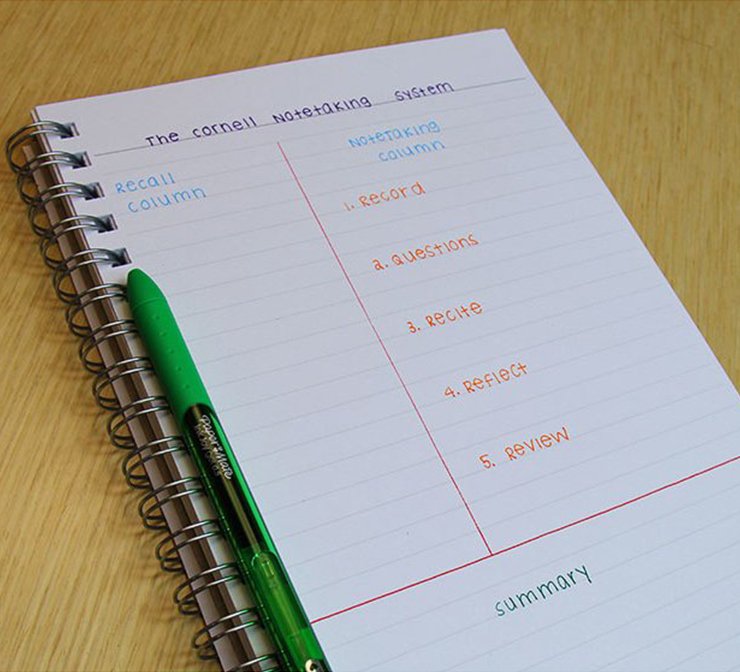 The Cornell Notetaking System
Recall
column
Notetaking
column
1. Record
2. Questions
3. Recite
4. Reflect
5. Review
summary
Paper Mate